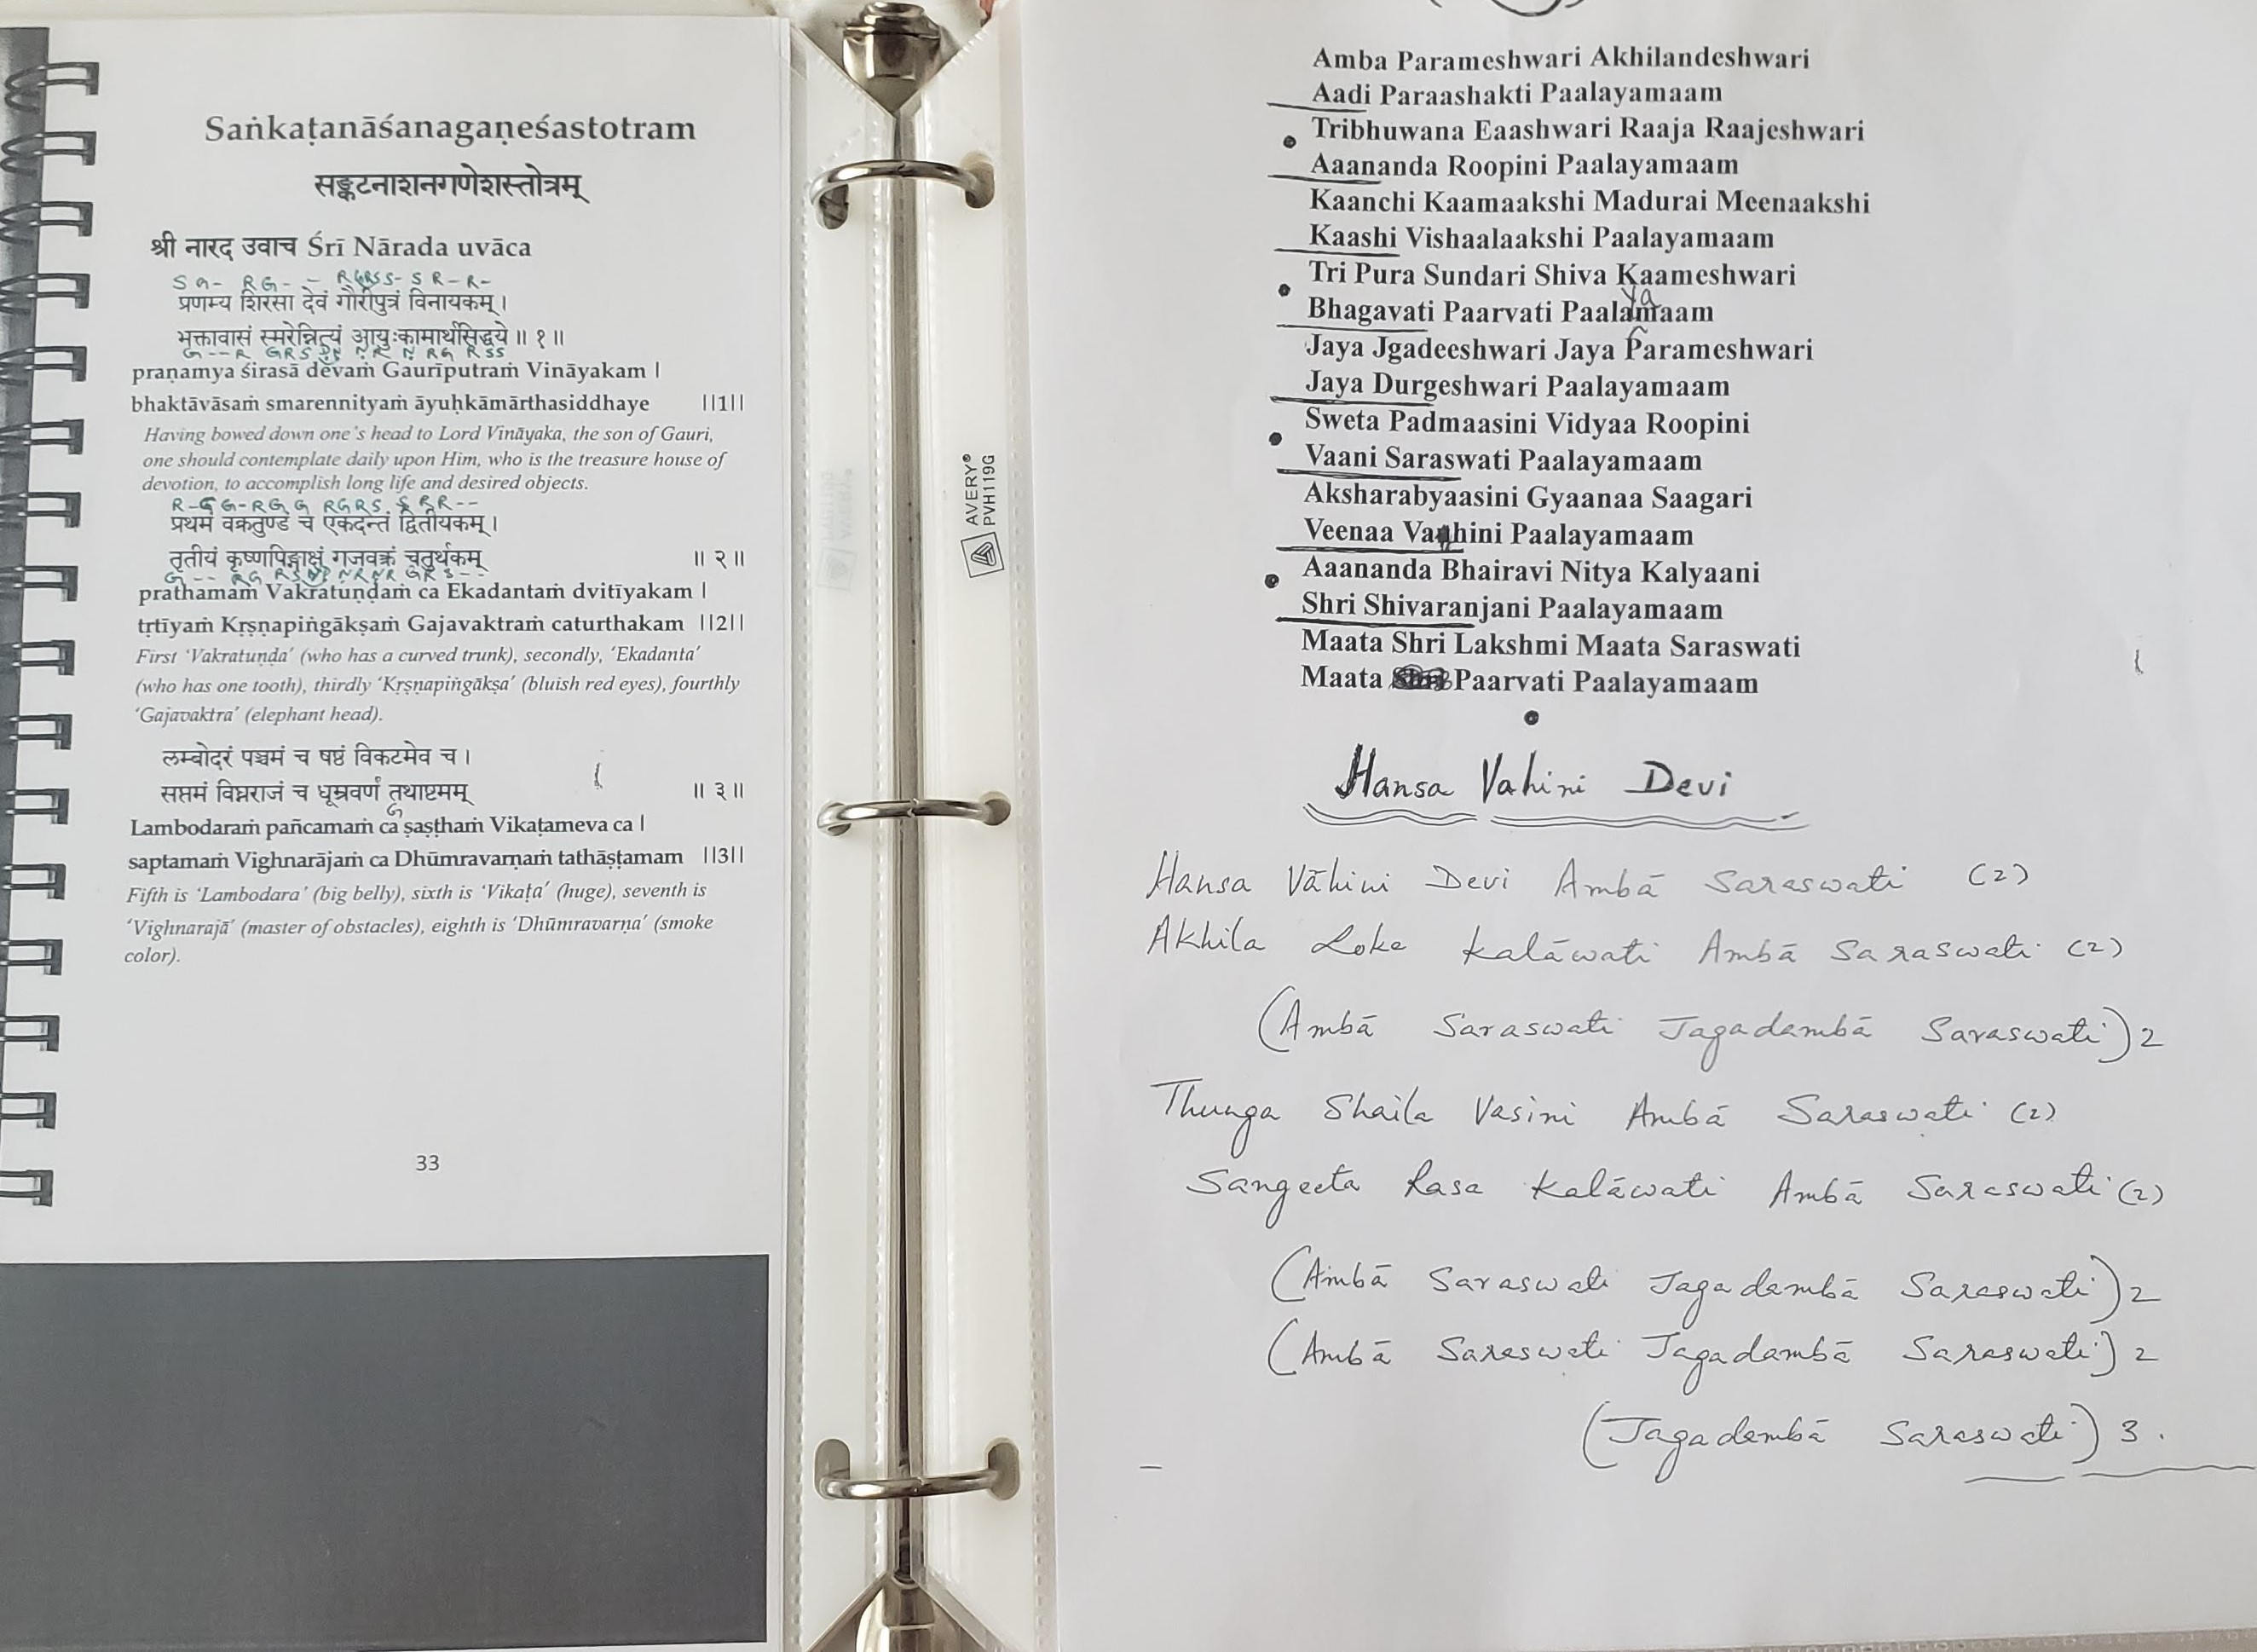 Saṅkaṭanāśanagaṇeśastotram
सङ्कटनाशनगणेशस्तोत्रम्
श्री नारद उवाच Śrī Nārada uvāca
S G- RG- - RGRSS- S R-R-
प्रणम्य शिरसा देवं गौरीपुत्रं विनायकम् ।
भक्तावासं स्मरेन्नित्यं आयुःकामार्थसिद्धये ॥ १ ॥
praṇamya śirasā devaṁ Gaurīputraṁ Vināyakam |
bhaktāvāsaṁ smarennityaṁ āyuḥkāmārthasiddhaye ||1||
Having bowed down one's head to Lord Vināyaka, the son of Gauri,
one should contemplate daily upon Him, who is the treasure house of
devotion, to accomplish long life and desired objects.
प्रथमं वक्रतुण्डं च एकदन्तं द्वितीयकम् ।
तृतीयं कृष्णपिङ्गाक्षं गजवक्त्रं चतुर्थकम् ॥ २ ॥
prathamaṁ Vakratuṇḍaṁ ca Ekadantaṁ dvitīyakam |
tṛtīyaṁ Kṛṣṇapiṅgākṣaṁ Gajavaktraṁ caturthakam ||2||
First 'Vakratuṇḍa' (who has a curved trunk), secondly, 'Ekadanta'
(who has one tooth), thirdly 'Kṛṣṇapiṅgākṣa' (bluish red eyes), fourthly
'Gajavaktra' (elephant head).
लम्बोदरं पञ्चमं च षष्ठं विकटमेव च ।
सप्तमं विघ्नराजं च धूम्रवर्णं तथाष्टमम् ॥ ३ ॥
G
Lambodaraṁ pañcamaṁ ca ṣaṣṭhaṁ Vikaṭameva ca |
saptamaṁ Vighnarājaṁ ca Dhūmravarṇaṁ tathāṣṭamam ||3||
Fifth is 'Lambodara' (big belly), sixth is 'Vikaṭa' (huge), seventh is
'Vighnarajā' (master of obstacles), eighth is 'Dhūmravarṇa' (smoke
color).
33
AVERY®
PVH119G
Amba Parameshwari Akhilandeshwari
Aadi Paraashakti Paalayamaam
Tribhuwana Eaashwari Raaja Raajeshwari
Aaananda Roopini Paalayamaam
Kaanchi Kaamaakshi Madurai Meenaakshi
Kaashi Vishaalaakshi Paalayamaam
Tri Pura Sundari Shiva Kaameshwari
ya
Bhagavati Paarvati Paalamaam
Jaya Jgadeeshwari Jaya Parameshwari
Jaya Durgeshwari Paalayamaam
Sweta Padmaasini Vidyaa Roopini
Vaani Saraswati Paalayamaam
Aksharabyaasini Gyaanaa Saagari
Veenaa Vaahini Paalayamaam
Aaananda Bhairavi Nitya Kalyaani
Shri Shivaranjani Paalayamaam
Maata Shri Lakshmi Maata Saraswati
Maata Paarvati Paalayamaam
Hansa Vahini Devi
Hansa Vāhini Devi Ambā Saraswati (2)
Akhila Loke Kalāwati Ambā Saraswati (2)
(Ambā Saraswati Jagadambā Saraswati) 2
Thunga Shaila Vasini Ambā Saraswati (2)
Sangeeta Rasa Kalāwati Ambā Saraswati (2)
(Ambā Saraswati Jagadambā Saraswati) 2
(Ambā Saraswati Jagadambā Saraswati) 2
(Jagadambā Saraswati) 3.